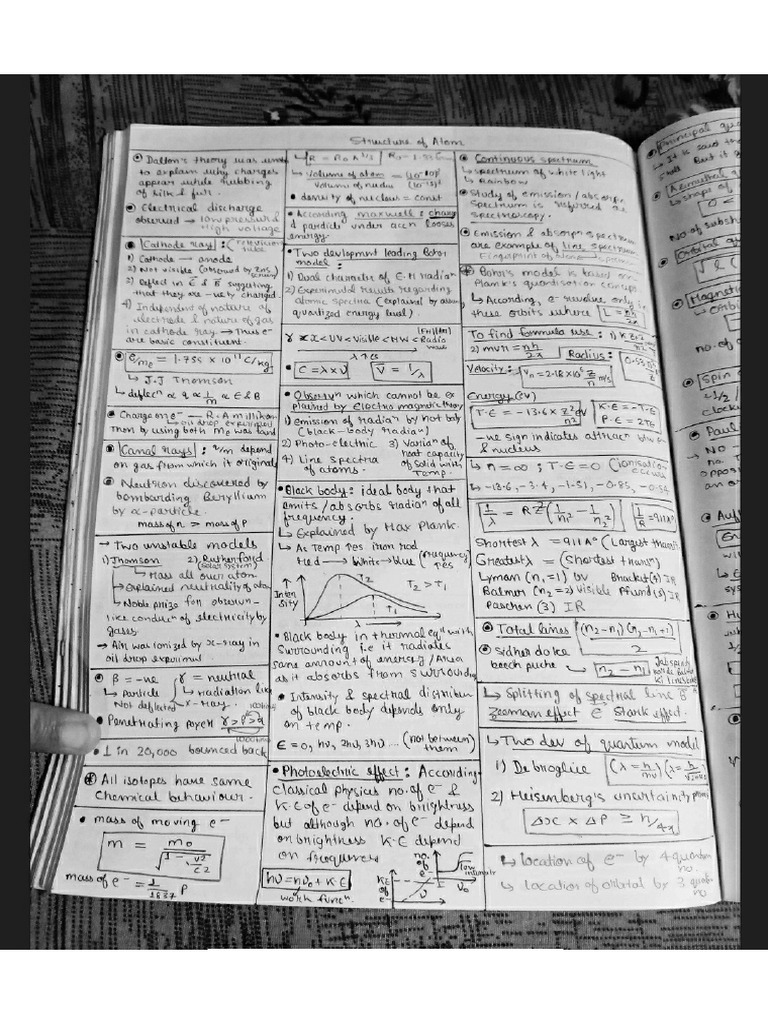 Structure of Atom
Dalton's theory was unable
to explain why charges
appear while rubbing
of silk & fur.
Electrical discharge
observed → low pressure &
High voltage
Cathode ray: (television tube)
1) Cathode → anode
2) Not visible (observed by ZnS screen)
3) Deflect in E & B suggesting
that they are -vely charged
4) Independent of nature of
electrode & nature of gas
in cathode ray → Thus e-
are basic constituent.
e/me = 1.758 × 10^11 C/kg
↳ J.J Thomson
↳ deflecn ∝ q ∝ 1/m ∝ E & B
Charge on e- — R.A millikan
↳ oil drop experiment
Then by using both me was found
Canal rays: e/m depend
on gas from which it originate
Neutron discovered by
bombarding Beryllium
by α-particle.
mass of n > mass of p
→ Two unstable models
1) Thomson 2) Rutherford
(solar system)
↳ Mass all over atom
→ Explained neutrality of atom
↳ Noble prize for observn-
like conducn of electricity by
gases
→ Air was ionized by x-ray in
oil drop experiment
β = -ve γ = neutral
↳ Particle ↳ radiation like
Not deflected x-ray.
Penetrating power γ > β > α
1000 times
• 1 in 20,000 bounced back
All isotopes have same
Chemical behaviour.
• mass of moving e-
m = m0/√1 - v²/c²
mass of e- = 1/1837 P
↳ R = R0 A^1/3
↳ Volume of atom/Volume of nucleus
• density of nucleus = const
• According maxwell & charge
d particle under accn looses
energy
• Two devlopment leading Bohr
model:
1) Dual character of E.M radian
2) Experimental results regarding
atomic spectra (explained by assum
quantized energy level).
γ < X < UV < Visible < MW < Radio
wave
λ ↑es
• C = λ × ν ν̄ = 1/λ
• Observn which cannot be ex
plained by Electro magnetic theory
1) emission of radian by hot body
(black-body radian)
2) Photo-electric 3) Varian of
heat capacity
of solid with
Temp.
4) Line spectra
of atoms.
• Black body: ideal body that
emits/absorbs radian of all
frequency.
↳ Explained by Max Plank.
↳ As Temp ↑es iron rod
Red → White → blue (frequency
↑es
Inten
sity
T2
T1
T2 > T1
λ →
• Black body in thermal eqm with
Surrounding i.e it radiates
same amount of energy/Area
as it absorbs from surrounding
• Intensity & spectral distribun
of black body depends only
on temp.
E = 0, hν, 2hν, 3hν... (not between
them)
• Photoelectric effect: According
classical physics no. of e- &
K.E of e- depend on brightness
but although no. of e- depend
on brightness K.E depend
on frequency
hν = hν0 + K.E
work funcn.
no. of
e-
low
intensity
ν0
KE
of
e-
ν
Continuous spectrum
↳ spectrum of white light
↳ Rainbow
Study of emission / absorpn
spectrum is referred as
spectroscopy.
Emission & absorpn spectrum
are example of line spectrum
Fingerprint of atoms
Bohr's model is based on
Plank's quantisation concept
↳ According, e- revolve only in
these orbits where L = nh/2π
To find formula use: 1)
2) mvr = nh/2π Radius:
Velocity: Vn = 2.18 × 10^6 Z/n m/s
Energy (eV)
T.E = -13.6 × Z²/n² eV
K.E = -T.E
P.E = 2TE
-ve sign indicates attracn btw e-
& nucleus
↳ n = ∞ ; T.E = 0 (ionisation
occurs
↳ -13.6, -3.4, -1.51, -0.85, -0.54
1/λ = RZ² (1/n1² - 1/n2²) 1/R = 911 A°
Shortest λ = 911 A° (Largest transn)
Greatest λ = (Shortest transn)
Lyman (n1 = 1) UV Bracket (4) IR
Balmer (n2 = 2) visible Pfund (5) IR
Paschen (3) IR
Total lines (n2-n1)(n2-n1+1)/2
Sidhe deke
beech puche ↳ n2 - n1
↳ Splitting of spectral line B
Zeeman effect E Stark effect.
↳ Two dev of quantum model
1) De broglie (λ = h/mv)
2) Heisenberg's uncertainity
Δx × ΔP ≥ h/4π
↳ location of e- by 4 quantum
no.
↳ location of orbital by 3 quantum
no.
Principal
It is said
Azimuthal
shape of
Orbital
Magnetic
orbit
no. of
Spin
clock
NO
no.
oppos
an or